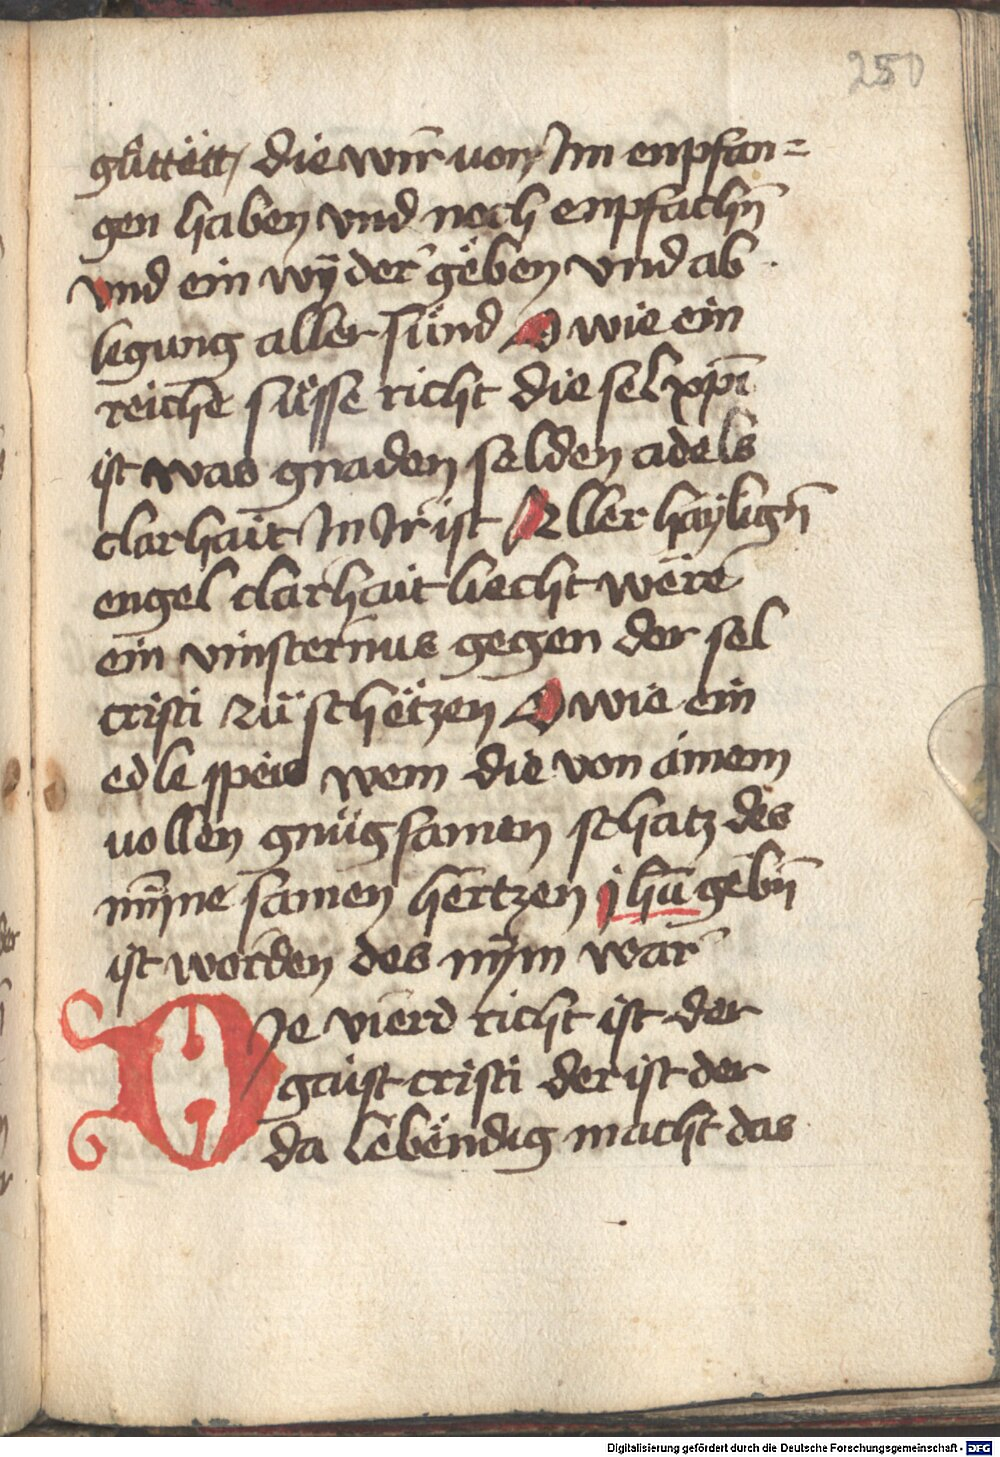 250
gůttëtt / die wir von Im enpfan=
gen haben vnd noch enpfachn̄
vnd ein wÿder gëben vnd ab
legung aller sünd O wie ein
reiche süsse richt die sel xp̄i
ist was gnaden selden adels
clarhait In Ir ist Aller haÿlign̄
engel clarhait liecht were
ein vinsternus gegen der sel
cristi zü schëtzen O wie ein
edle speis wem die von ainem
vollen gnügsamen schatz des
mÿne samen hertzen jhū gebn̄
ist worden des nÿm war
Die vierd richt ist der
gaist cristi der ist der
da lebëndig macht das
Digitalisierung gefördert durch die Deutsche Forschungsgemeinschaft - DFG